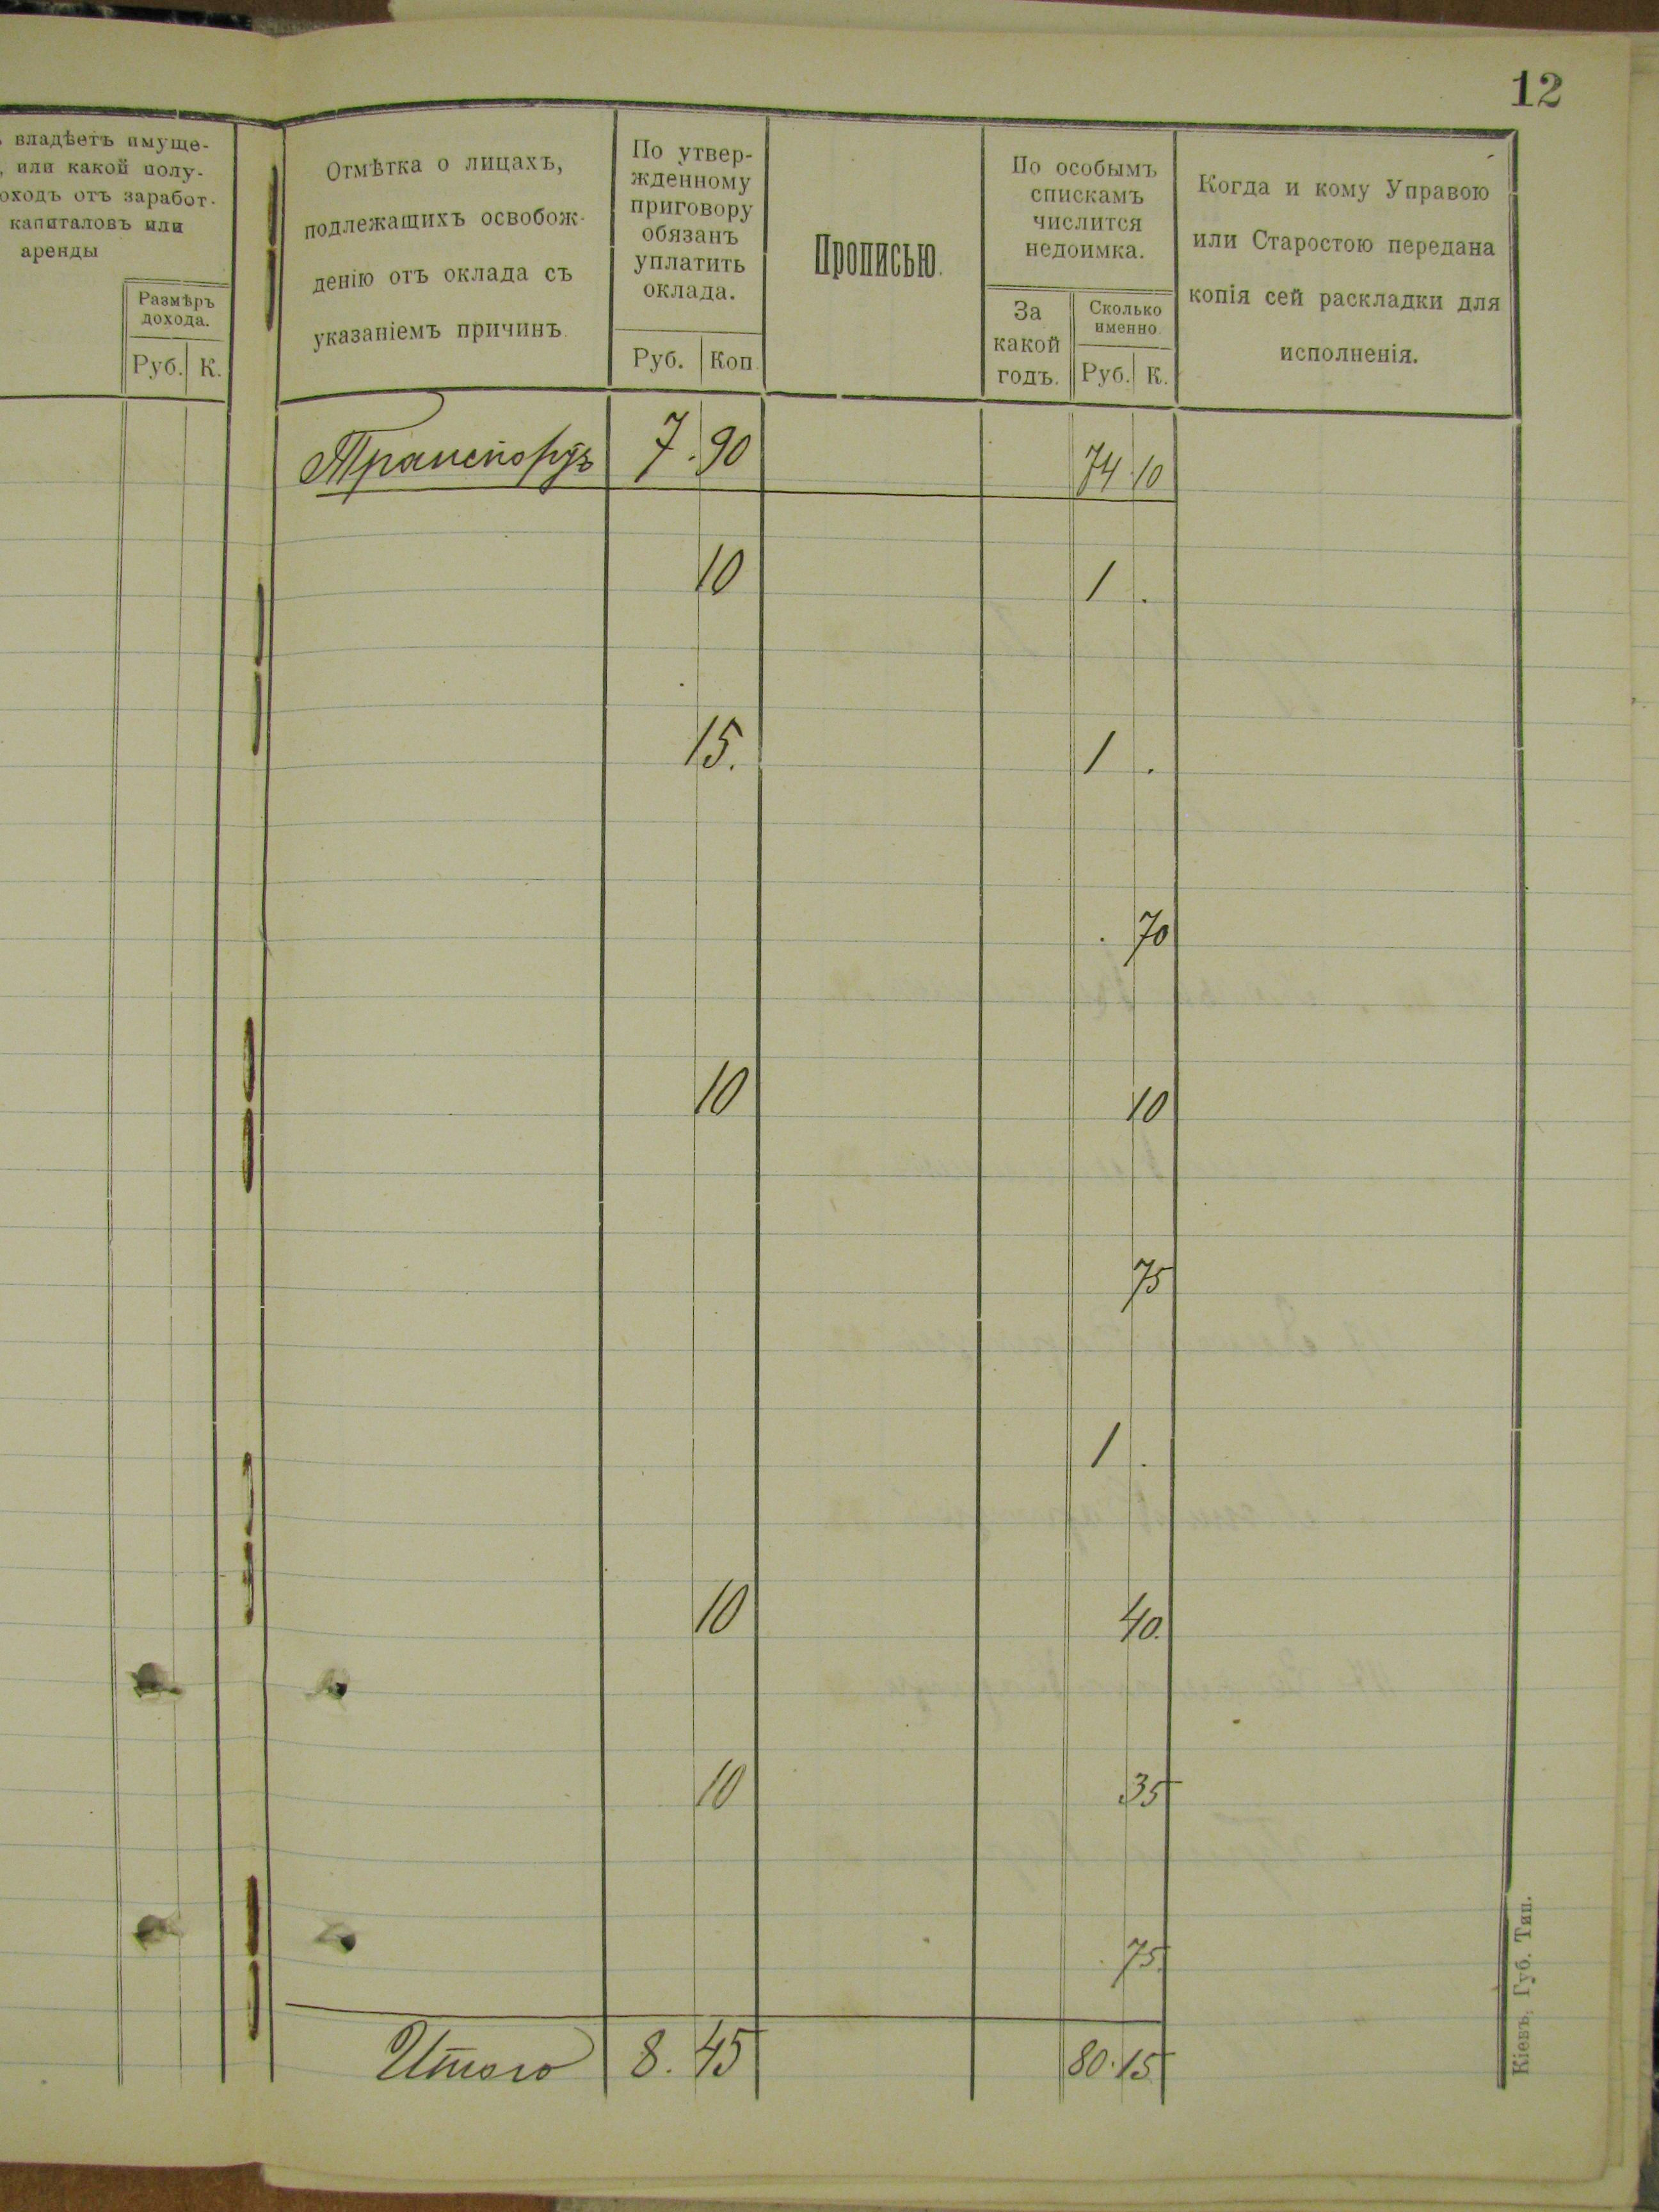 12
владѣетъ имуще-
или какой полу-
оходъ отъ заработ-
капиталовъ или
аренды
Размѣръ
дохода.
Руб. К.
Отмѣтка о лицахъ,
подлежащихъ освобож-
денію отъ оклада съ
указаніемъ причинъ
По утвер-
жденному
приговору
обязанъ
уплатить
оклада.
Руб. Коп
Прописью.
По особымъ
спискамъ
числится
недоимка.
За
какой
годъ.
Сколько
именно.
Руб. К.
Когда и кому Управою
или Старостою передана
копія сей раскладки для
исполненія.
Транспортъ 7.90 74.10
10 1 .
15. 1 .
. 70
10 10
75
1 .
10 40.
10 35
75.
Итого 8.45 80.15
Кіевъ, Губ. Тип.